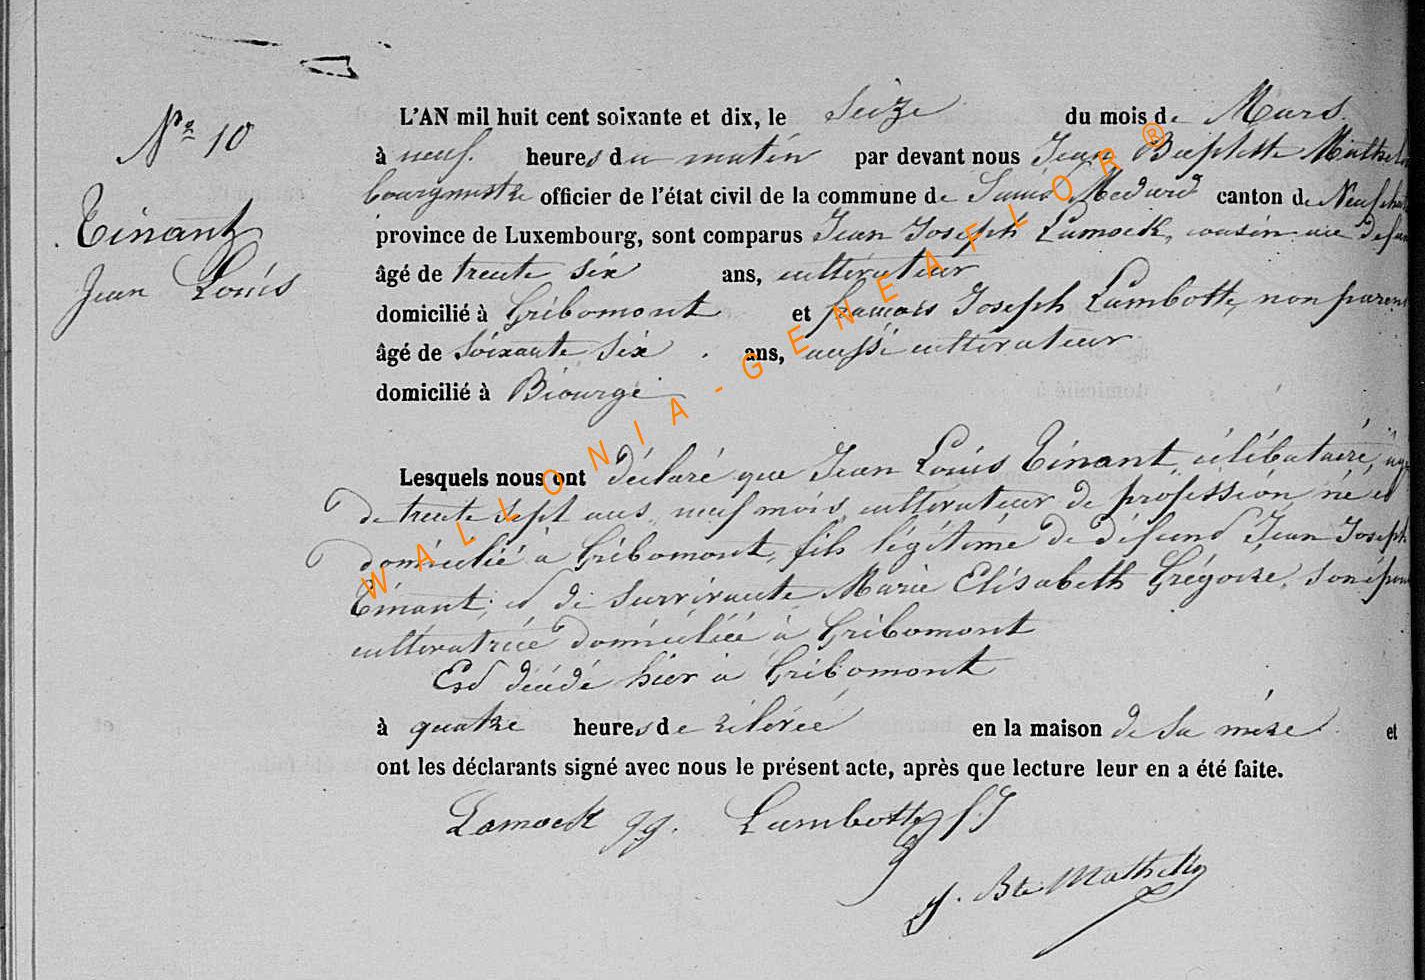 Nº 10
Tinant
Jean Louis
L'AN mil huit cent soixante et dix, le Seize du mois de Mars
à neuf heures du matin par devant nous Jean Baptiste Mathel
bourgmestre officier de l'état civil de la commune de Saint Médard canton de Neufchat
province de Luxembourg, sont comparus Jean Joseph Lamock, cousin au défun
âgé de trente six ans, cultivateur
domicilié à Gribomont et françois Joseph Lambotte, non parent
âgé de soixante six ans, aussi cultivateur
domicilié à Biourge
Lesquels nous ont déclaré que Jean Louis Tinant, célibataire, agé
de trente sept ans, neuf mois, cultivateur de profession, né et
domicilié à Gribomont, fils légitime de défunt Jean Joseph
Tinant, et de survivante Marie Elisabeth Grégoire, son épou
cultivatrice domiciliée à Gribomont
Est décédé hier à Gribomont
à quatre heures de rélevée en la maison de sa mère et
ont les déclarants signé avec nous le présent acte, après que lecture leur en a été faite.
Lamock jj. Lambotte f. J
J. Bte Mathelin
WALLONIA-GENEAFLOR®